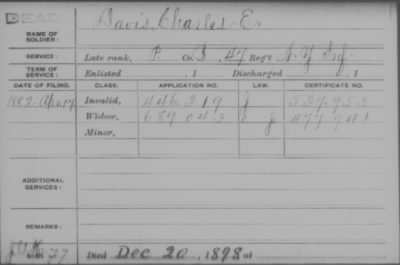 DEAD
NAME OF SOLDIER: Davis, Charles E.
SERVICE: Late rank, P Co. 47 Reg't N.Y. Inf.
TERM OF SERVICE: Enlisted , 1 Discharged , 1
DATE OF FILING. CLASS. APPLICATION NO. LAW. CERTIFICATE NO.
1882 Apr. 17 Invalid, 446 219 527.953
Widow, 689 043 477 941
Minor,
ADDITIONAL SERVICES:
REMARKS:
77 Died Dec 20, 1898 at